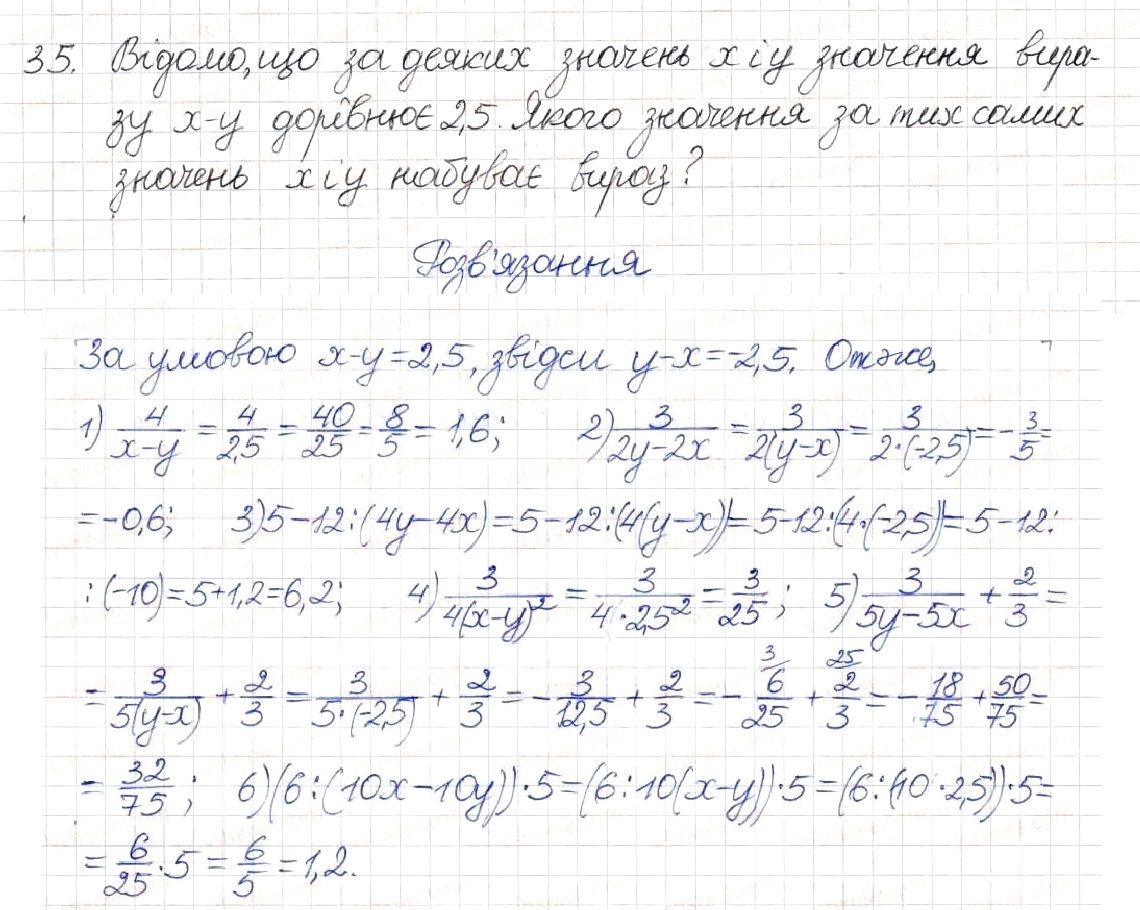 35. Відомо, що за деяких значень x і y значення вира-
зу x-y дорівнює 2,5. Якого значення за тих самих
значень x і y набуває вираз?
Розв'язання
За умовою x-y=2,5, звідси y-x=-2,5. Отже,
1) 4/(x-y) = 4/2,5 = 40/25 = 8/5 = 1,6; 2) 3/(2y-2x) = 3/(2(y-x)) = 3/(2·(-2,5)) = -3/5 =
= -0,6; 3) 5-12:(4y-4x) = 5-12:(4(y-x)) = 5-12:(4·(-2,5)) = 5-12:
:(-10)=5+1,2=6,2; 4) 3/(4(x-y)²) = 3/(4·2,5²) = 3/25; 5) 3/(5y-5x) + 2/3 =
= 3/(5(y-x)) + 2/3 = 3/(5·(-2,5)) + 2/3 = -3/12,5 + 2/3 = -6/25 (3) + 2/3 (25) = -18/75 + 50/75 =
= 32/75; 6) (6:(10x-10y))·5=(6:10(x-y))·5=(6:(10·2,5))·5=
= 6/25·5 = 6/5 = 1,2.